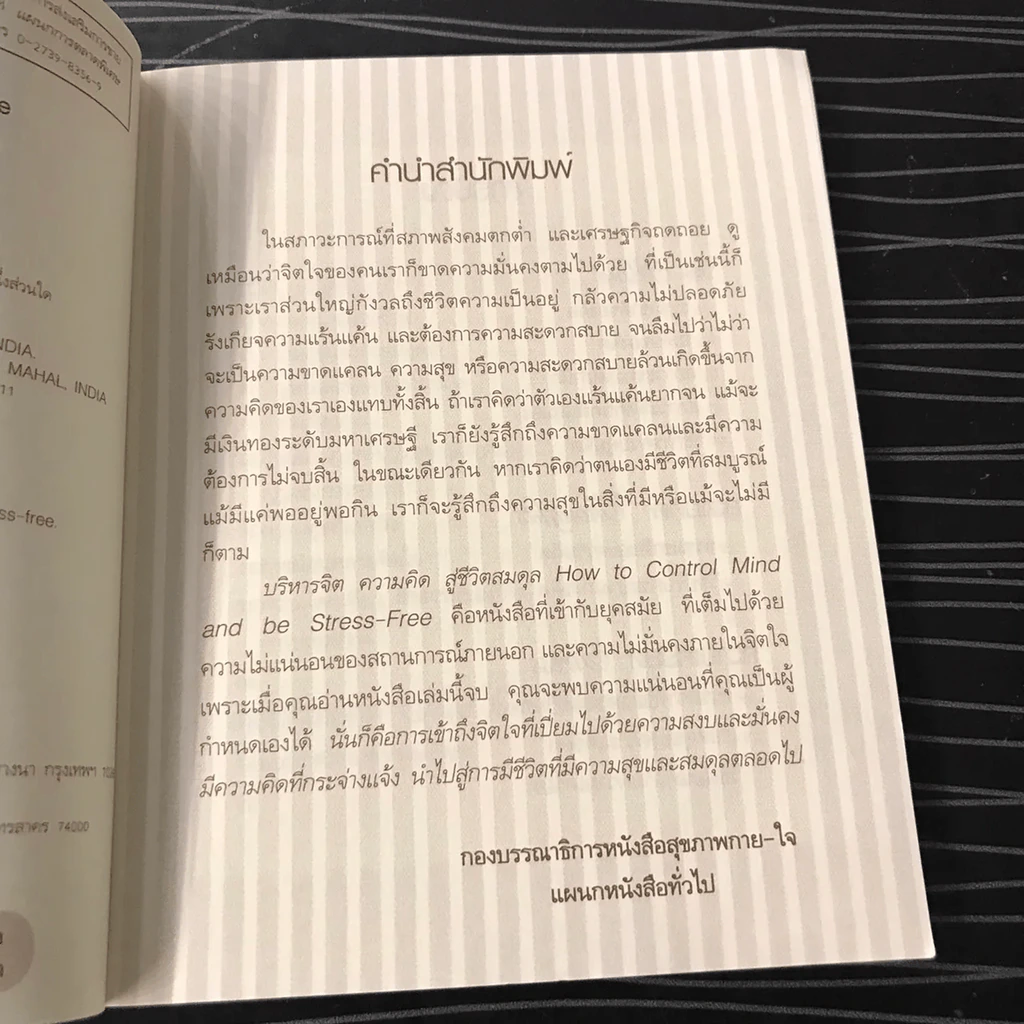 การส่งเสริมการขาย
แผนกการตลาดพิเศษ
0-2739-8356-9
e
ส่วนใด
INDIA.
MAHAL, INDIA
11
ss-free.
บางนา กรุงเทพฯ
74000
คำนำสำนักพิมพ์
ในสภาวะการณ์ที่สภาพสังคมตกต่ำ และเศรษฐกิจถดถอย ดู
เหมือนว่าจิตใจของคนเราก็ขาดความมั่นคงตามไปด้วย ที่เป็นเช่นนี้ก็
เพราะเราส่วนใหญ่กังวลถึงชีวิตความเป็นอยู่ กลัวความไม่ปลอดภัย
รังเกียจความแร้นแค้น และต้องการความสะดวกสบาย จนลืมไปว่าไม่ว่า
จะเป็นความขาดแคลน ความสุข หรือความสะดวกสบายล้วนเกิดขึ้นจาก
ความคิดของเราเองแทบทั้งสิ้น ถ้าเราคิดว่าตัวเองแร้นแค้นยากจน แม้จะ
มีเงินทองระดับมหาเศรษฐี เราก็ยังรู้สึกถึงความขาดแคลนและมีความ
ต้องการไม่จบสิ้น ในขณะเดียวกัน หากเราคิดว่าตนเองมีชีวิตที่สมบูรณ์
แม้มีแค่พออยู่พอกิน เราก็จะรู้สึกถึงความสุขในสิ่งที่มีหรือแม้จะไม่มี
ก็ตาม
บริหารจิต ความคิด สู่ชีวิตสมดุล How to Control Mind
and be Stress-Free คือหนังสือที่เข้ากับยุคสมัย ที่เต็มไปด้วย
ความไม่แน่นอนของสถานการณ์ภายนอก และความไม่มั่นคงภายในจิตใจ
เพราะเมื่อคุณอ่านหนังสือเล่มนี้จบ คุณจะพบความแน่นอนที่คุณเป็นผู้
กำหนดเองได้ นั่นก็คือการเข้าถึงจิตใจที่เปี่ยมไปด้วยความสงบและมั่นคง
มีความคิดที่กระจ่างแจ้ง นำไปสู่การมีชีวิตที่มีความสุขและสมดุลตลอดไป
กองบรรณาธิการหนังสือสุขภาพกาย-ใจ
แผนกหนังสือทั่วไป